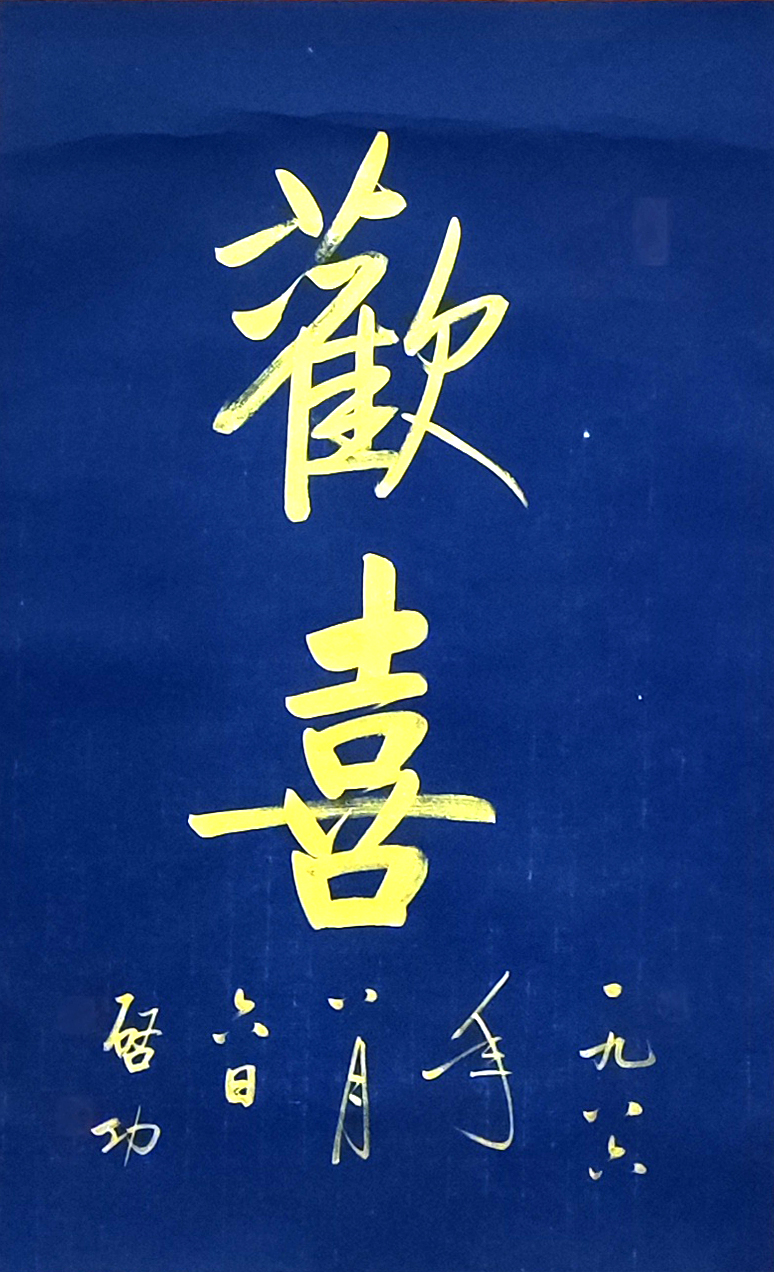 歡喜
一九八六
年
八月
六日
啓功